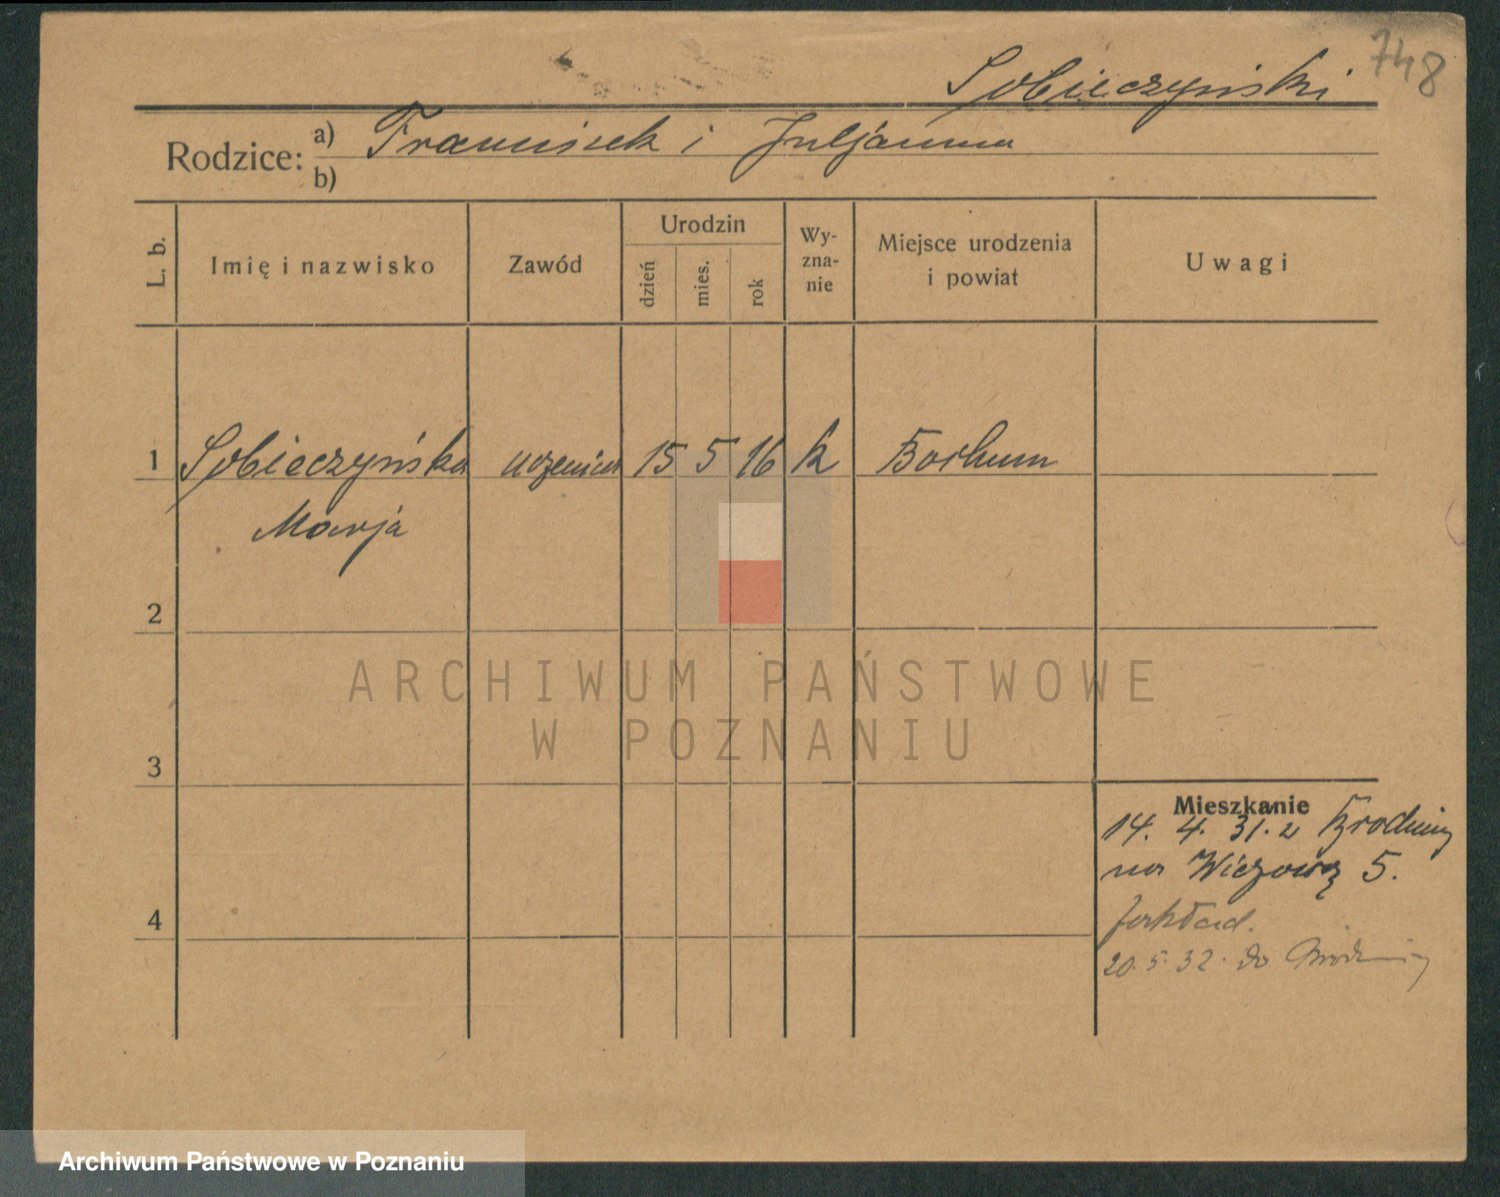 748
Sobieczyński
Rodzice: a) Franciszek i Juljanna
b)
L. b. Imię i nazwisko Zawód Urodzin dzień mies. rok Wy-zna-nie Miejsce urodzenia i powiat Uwagi
1 Sobieczyńska uczenica 15 5 16 k Bochum
Marja
2
ARCHIWUM PAŃSTWOWE
W POZNANIU
3
Mieszkanie
14. 4. 31. z Brodnicy
na Wiezową 5.
zakład.
4
20. 5. 32. do Brodnicy
Archiwum Państwowe w Poznaniu